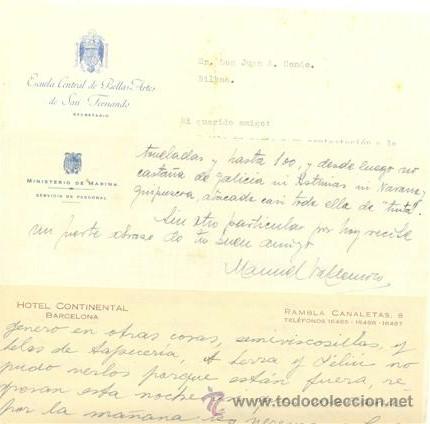 Escuela Central de Bellas Artes
de San Fernando
SECRETARIO
Sr. Don Juan A. Conde.
Bilbao.
Mi querido amigo:
contestación a la
MINISTERIO DE MARINA
SERVICIO DE PERSONAL
toneladas y hasta 100, y desde luego no
castaña de Galicia ni Asturias ni Navarra
guipuzcoa, atacada casi toda ella de "tinta".
Sin otro particular por hoy recibe
un fuerte abrazo de tu buen amigo
Manuel
HOTEL CONTINENTAL
BARCELONA
RAMBLA CANALETAS, 8
TELÉFONOS 16485 - 16486 - 16487
genero en otras cosas, semiviscosillas, y
telas de tapicería, A Serra y no
pudo verlos porque están fuera, re-
gresan esta noche
por la mañana
todocoleccion
todocoleccion.net